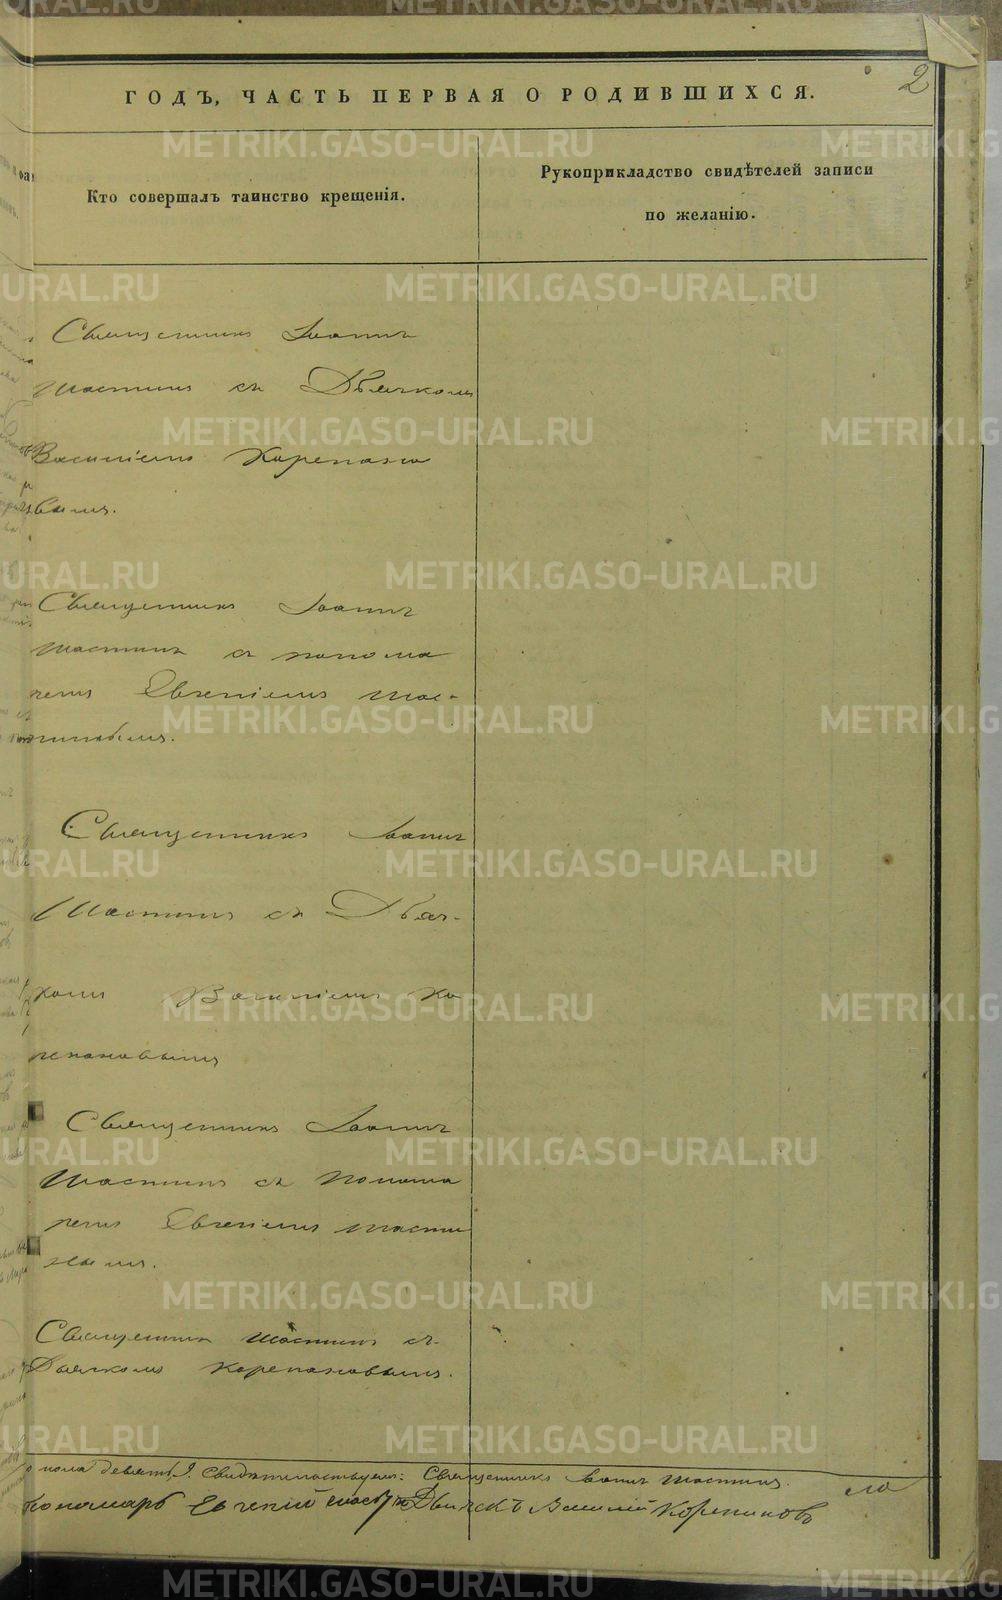 2
ГОДЪ, ЧАСТЬ ПЕРВАЯ О РОДИВШИХСЯ.
Кто совершалъ таинство крещенія.
Рукоприкладство свидѣтелей записи
по желанію.
Священникъ Іоаннъ
Шастинъ съ Дьячкомъ
Василіемъ Корепано
вымъ.
Священникъ Іоаннъ
Шастинъ съ понома
ремъ Евгеніемъ Шас-
тинымъ.
Священникъ Іоаннъ
Шастинъ съ Дьяч-
комъ Василіемъ Ко
репановымъ
Священникъ Іоаннъ
Шастинъ съ Понома
ремъ Евгеніемъ Шасти
нымъ.
Священникъ Шастинъ съ
Дьячкомъ Корепановымъ.
пола девять, Свидетельствуемъ: Священникъ Іоаннъ Шастинъ.
Пономарь Евгеній Шастинъ Дьячекъ Василий Корепановъ
METRIKI.GASO-URAL.RU